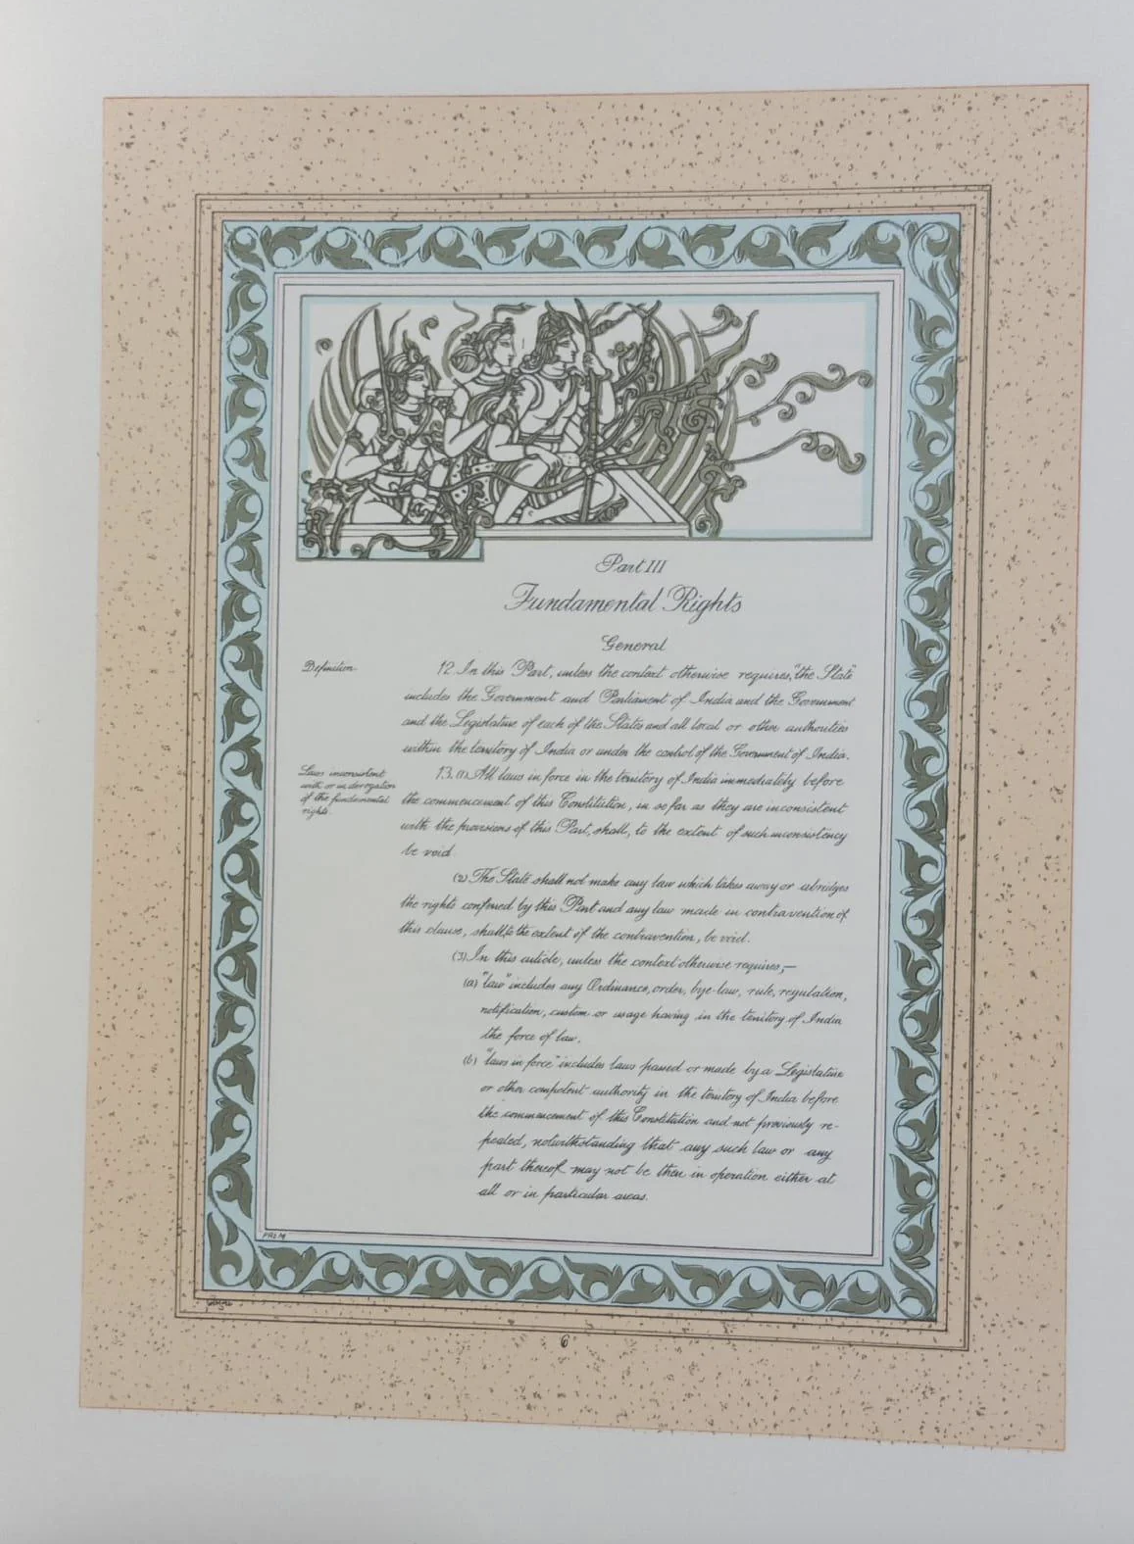 Part III
Fundamental Rights
General
Definition.
12. In this Part, unless the context otherwise requires, "the State"
includes the Government and Parliament of India and the Government
and the Legislature of each of the States and all local or other authorities
within the territory of India or under the control of the Government of India.
Laws inconsistent
with or in derogation
of the fundamental
rights.
13. (1) All laws in force in the territory of India immediately before
the commencement of this Constitution, in so far as they are inconsistent
with the provisions of this Part, shall, to the extent of such inconsistency
be void.
(2) The State shall not make any law which takes away or abridges
the rights conferred by this Part and any law made in contravention of
this clause, shall to the extent of the contravention, be void.
(3) In this article, unless the context otherwise requires,—
(a) "law" includes any Ordinance, order, bye-law, rule, regulation,
notification, custom or usage having in the territory of India
the force of law.
(b) "laws in force" includes laws passed or made by a Legislature
or other competent authority in the territory of India before
the commencement of this Constitution and not previously re-
pealed, notwithstanding that any such law or any
part thereof may not be then in operation either at
all or in particular areas.
6